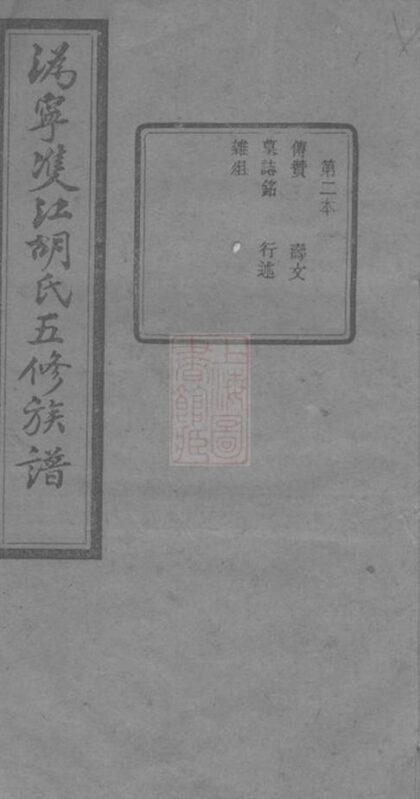 溈寧雙江胡氏五修族譜
第二本
傳贊 壽文
墓誌銘 行述
雜俎
上海圖
書館藏